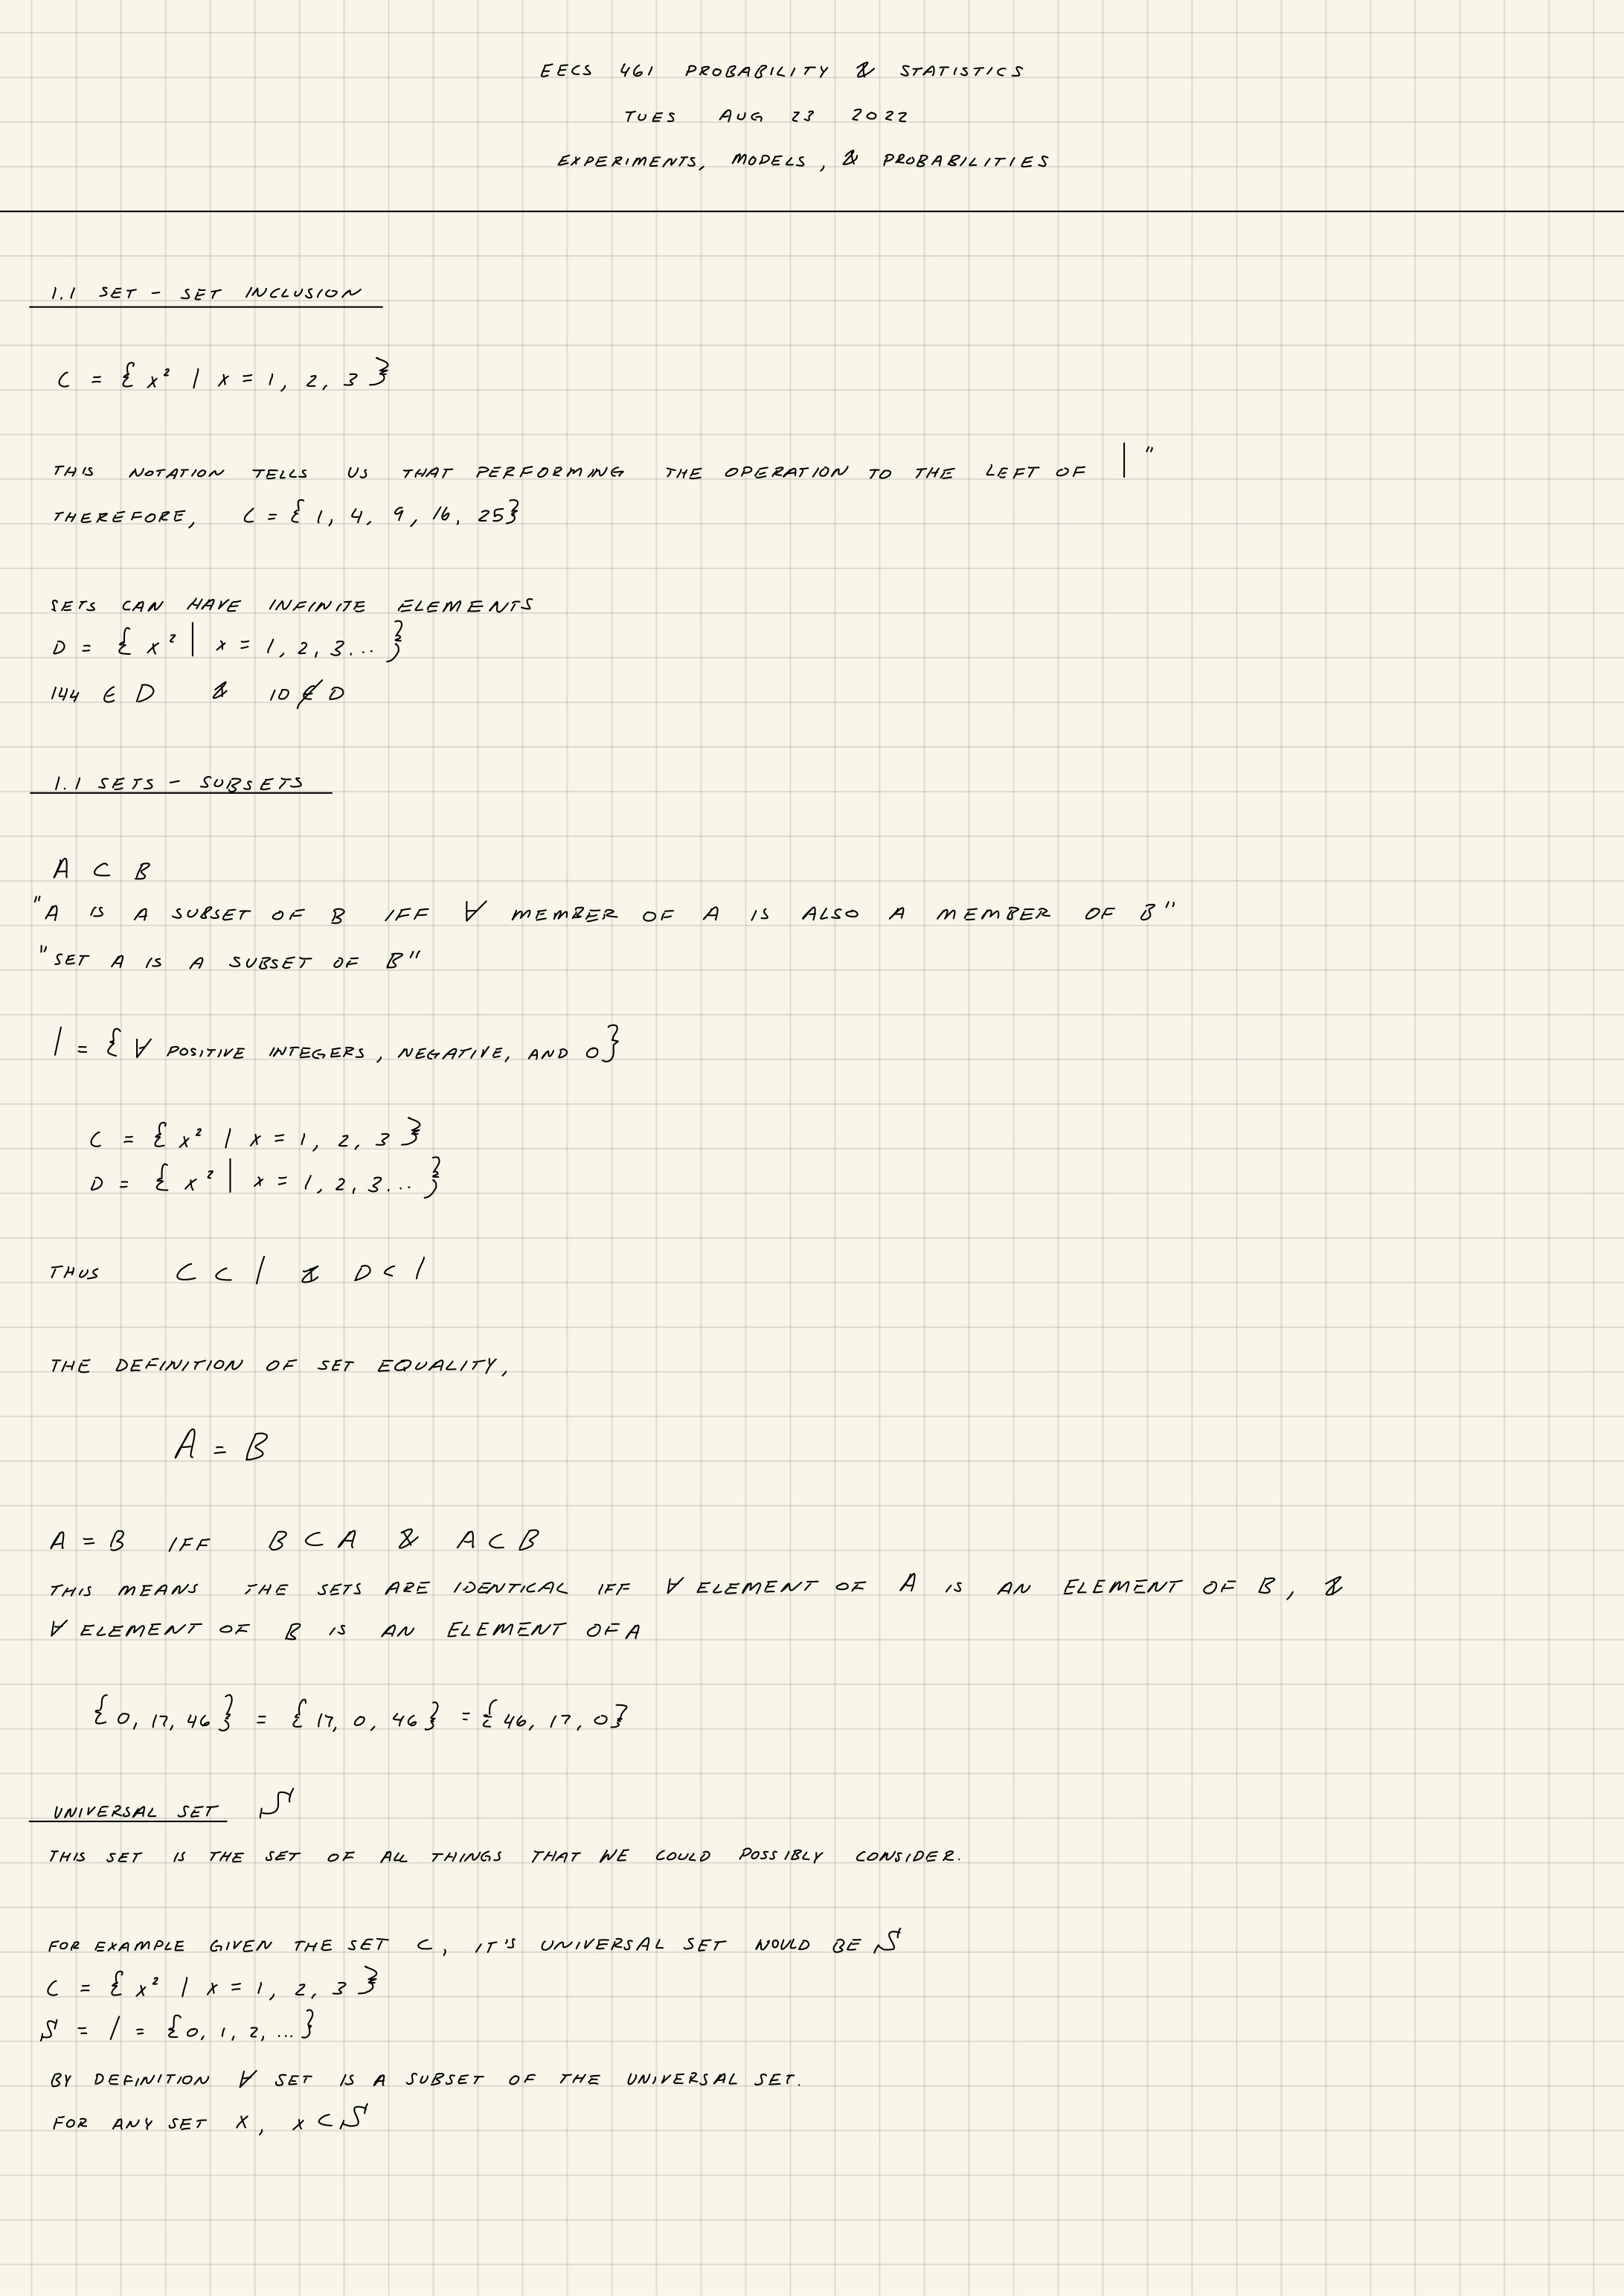 EECS 461 PROBABILITY & STATISTICS
TUES AUG 23 2022
EXPERIMENTS, MODELS, & PROBABILITIES
1.1 SET - SET INCLUSION
C = { x² | x = 1, 2, 3 }
THIS NOTATION TELLS US THAT PERFORMING THE OPERATION TO THE LEFT OF | "
THEREFORE, C = { 1, 4, 9, 16, 25}
SETS CAN HAVE INFINITE ELEMENTS
D = { x² | x = 1, 2, 3... }
144 ∈ D & 10 ∉ D
1.1 SETS - SUBSETS
A ⊂ B
"A IS A SUBSET OF B IFF ∀ MEMBER OF A IS ALSO A MEMBER OF B"
"SET A IS A SUBSET OF B"
I = { ∀ POSITIVE INTEGERS, NEGATIVE, AND 0}
C = { x² | x = 1, 2, 3 }
D = { x² | x = 1, 2, 3... }
THUS C ⊂ I & D ⊂ I
THE DEFINITION OF SET EQUALITY,
A = B
A = B IFF B ⊂ A & A ⊂ B
THIS MEANS THE SETS ARE IDENTICAL IFF ∀ ELEMENT OF A IS AN ELEMENT OF B, &
∀ ELEMENT OF B IS AN ELEMENT OF A
{0, 17, 46} = {17, 0, 46} = {46, 17, 0}
UNIVERSAL SET S
THIS SET IS THE SET OF ALL THINGS THAT WE COULD POSSIBLY CONSIDER.
FOR EXAMPLE GIVEN THE SET C, IT'S UNIVERSAL SET WOULD BE S
C = { x² | x = 1, 2, 3 }
S = I = {0, 1, 2, ...}
BY DEFINITION ∀ SET IS A SUBSET OF THE UNIVERSAL SET.
FOR ANY SET X, X ⊂ S